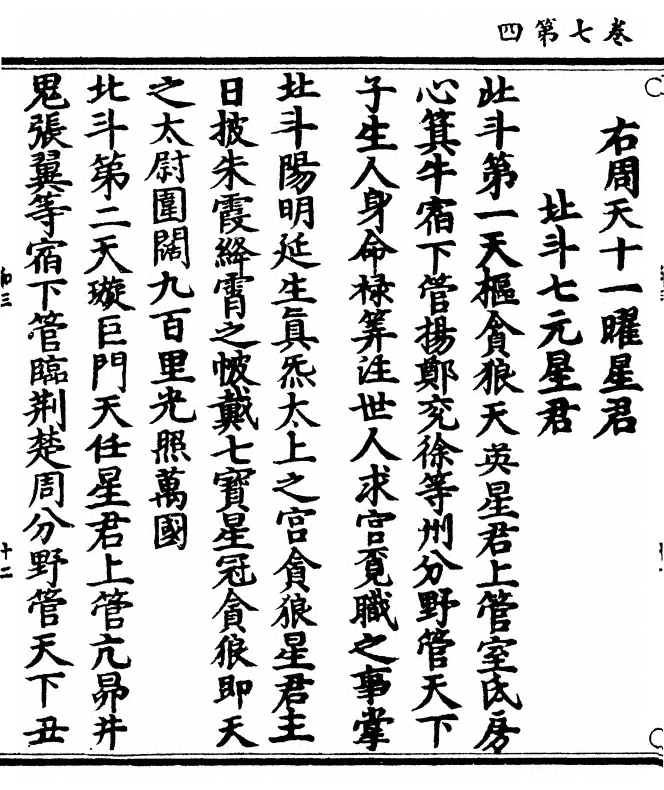 卷七第四
右周天十一曜星君
北斗七元星君
北斗第一天樞貪狼天英星君上管室氐房
心箕牛宿下管揚鄭兖徐等州分野管天下
子生人身命祿筭注世人求官覓職之事掌
北斗陽明延生眞炁太上之宫貪狼星君主
日披朱霞絳霄之帔戴七寳星冠貪狼即天
之太尉圍闊九百里光照萬國
北斗第二天璇巨門天任星君上管亢昴井
鬼張翼等宿下管臨荆楚周分野管天下丑
十二